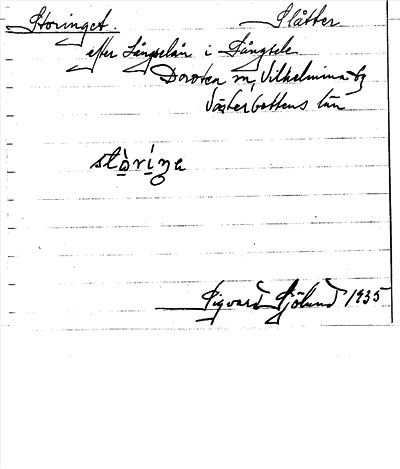 Storinget. Slåtter
efter Långselån i Tångsele
Dorotea sn, Vilhelmina tg
Västerbottens län
stòríŋe
Sigvard Sjölund 1935